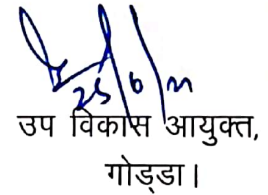 25/6/21
उप विकास आयुक्त,
गोड्डा।